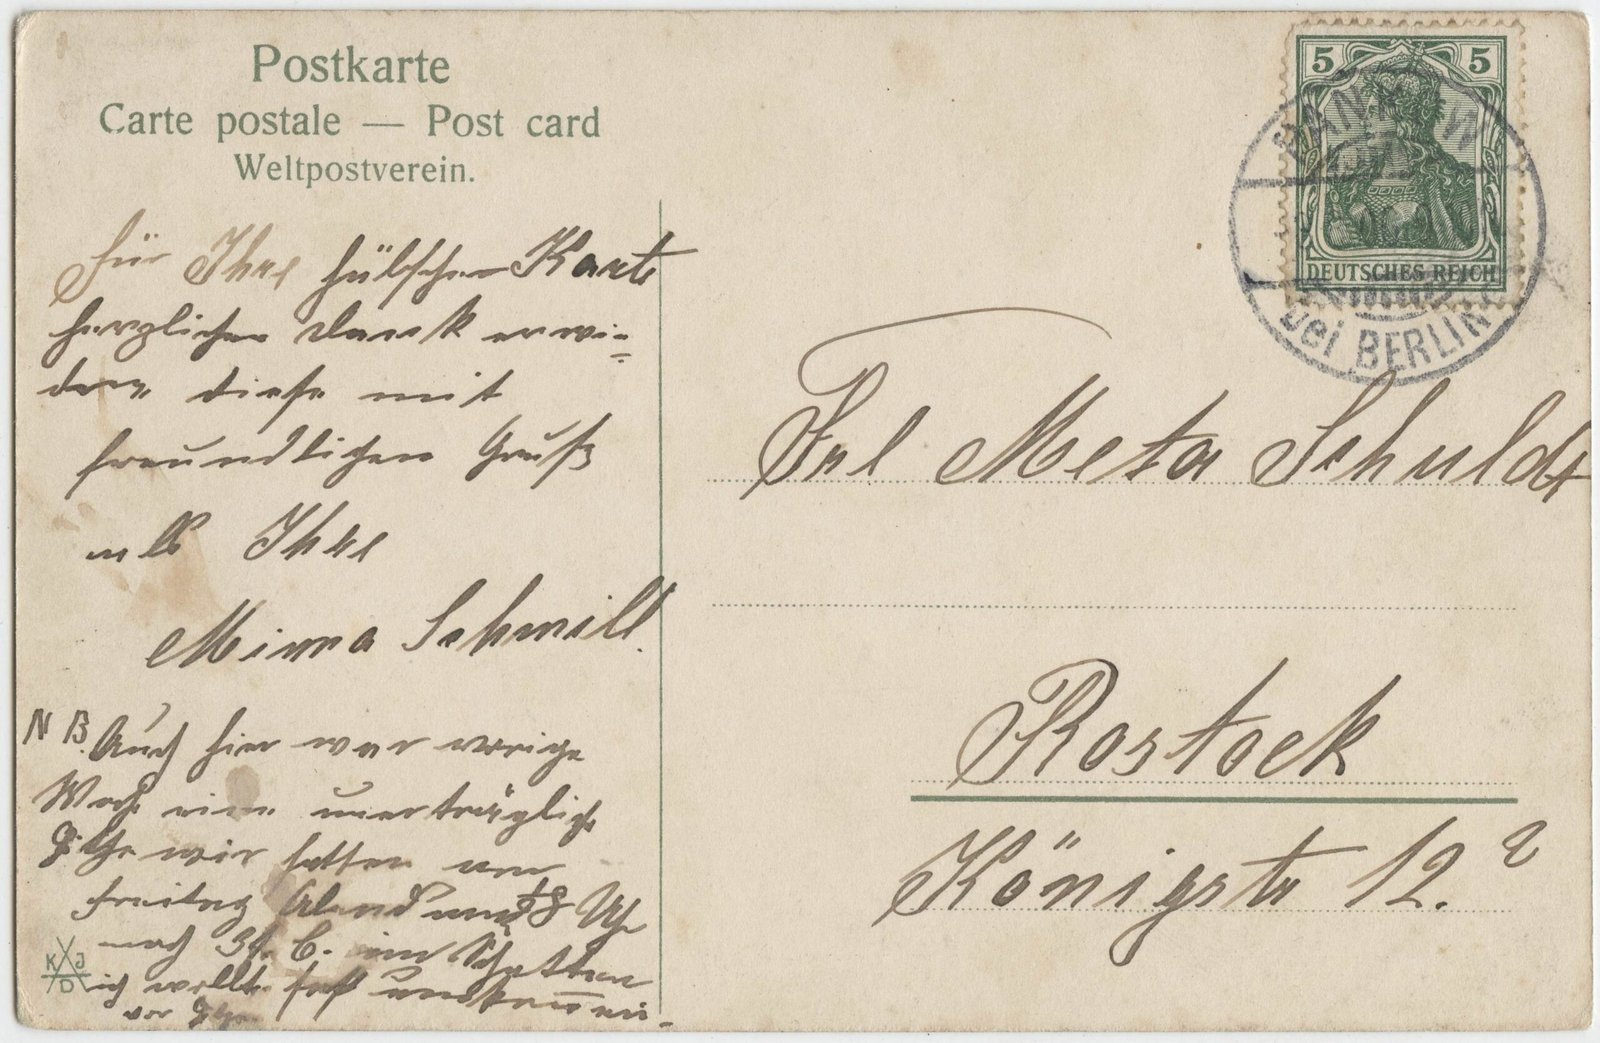 Postkarte
Carte postale — Post card
Weltpostverein.
5 5
DEUTSCHES REICH
PANKOW
bei BERLIN
Für Ihre hübsche Karte
herzlichen Dank erwi-
dere diese mit
freundlichen Gruß
als Ihre
Minna Schmill.
NB. Auch hier war vorige
Woche eine unerträgliche
Hitze wir hatten am
Freitag Abend um 8 Uhr
noch 31. C. im Schatten
ich wollte fast umkommen
vor
Frl Meta Schuldt
Rostock
Königstr 12. 2
K J D